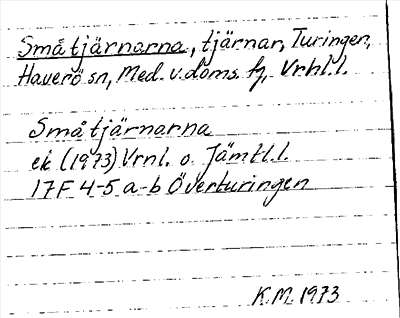 Småtjärnarna, tjärnar, Turingen,
Haverö sn, Med. v. doms. tg, Vrnl. l.
Småtjärnarna
ek (1973) Vrnl. o. Jämtl. l.
17F 4-5 a-b Överturingen
K.M. 1973